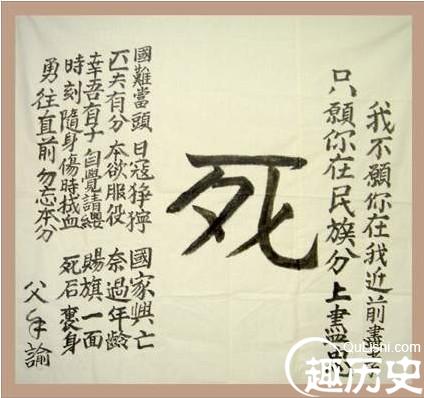 我不願你在我近前盡孝
只願你在民族分上盡忠
死
國難當頭 日寇猙獰 國家興亡
匹夫有分 本欲服役 奈過年齡
幸吾有子 自覺請纓 賜旗一面
時刻隨身 傷時拭血 死后裹身
勇往直前 勿忘本分
父手諭
QuLishi.com
趣历史